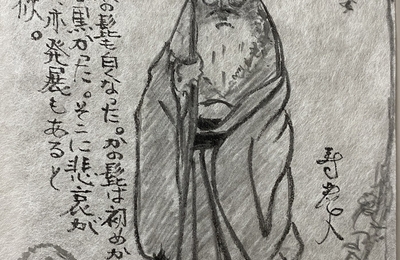 寿老人
の髭も白くなった。かの髭は初めか
黒かった。そこに悲哀が
亦発展もあると
候。